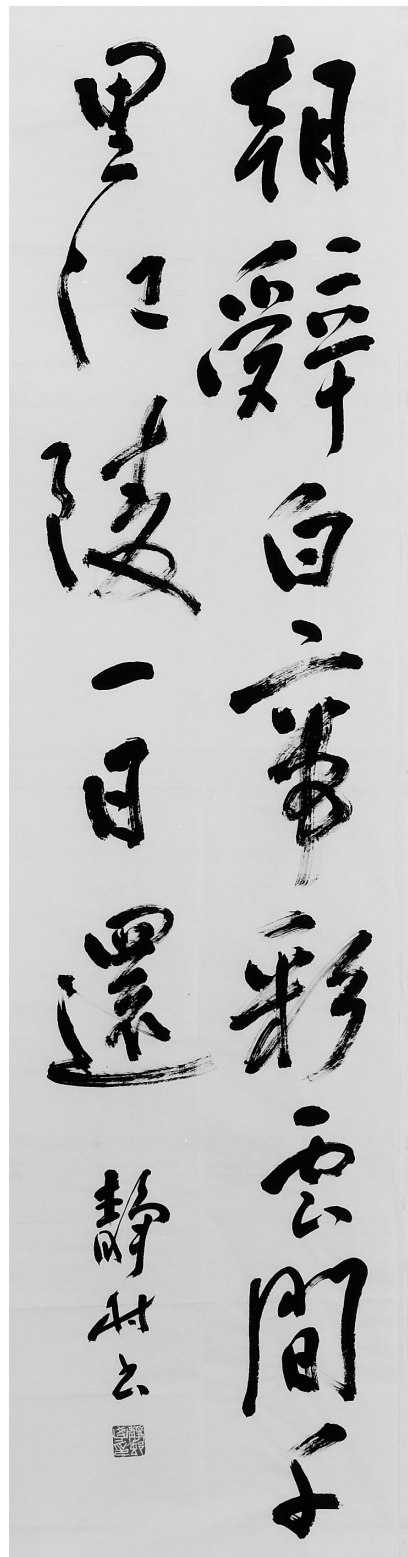 朝辭白帝彩雲間千
里江陵一日還
靜村书